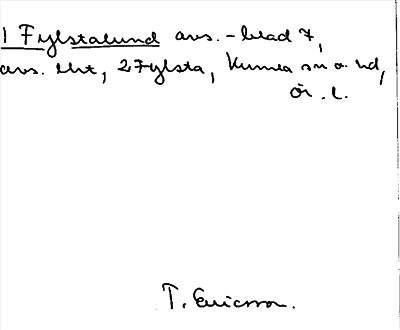 1 Fylstalund avs. - blad 7,
avs. Eht, 2 Fylsta, Kumla sn o. hd,
Ör. l.
T. Ericsson.